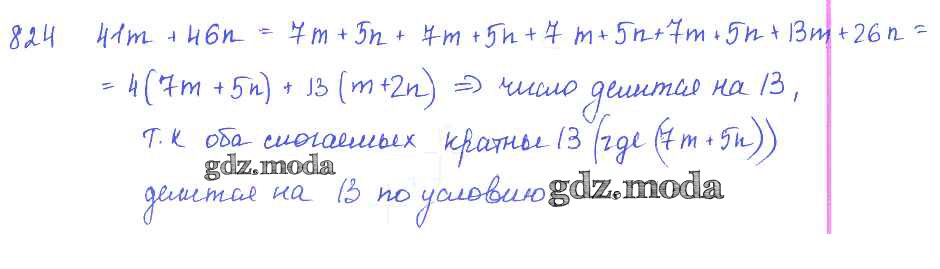 824 41m + 46n = 7m + 5n + 7m + 5n + 7m + 5n + 7m + 5n + 13m + 26n =
= 4(7m + 5n) + 13(m + 2n) ⇒ число делится на 13,
т.к оба слогаемых кратны 13 (где (7m + 5n))
gdz.moda
делится на 13 по условию
gdz.moda